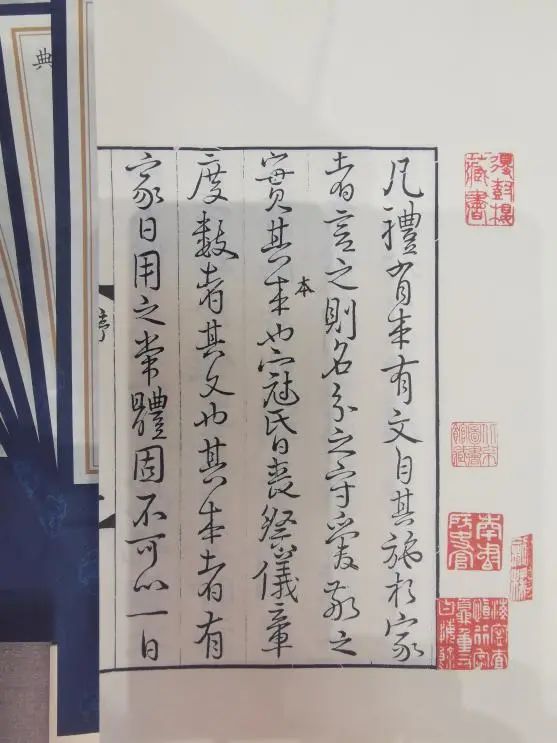 凡禮有本有文自其施於家
者言之則名分之守愛敬之
實其本也冠昬喪祭儀章
本
度數者其文也其本者有
家日用之常體固不可以一日
序
典